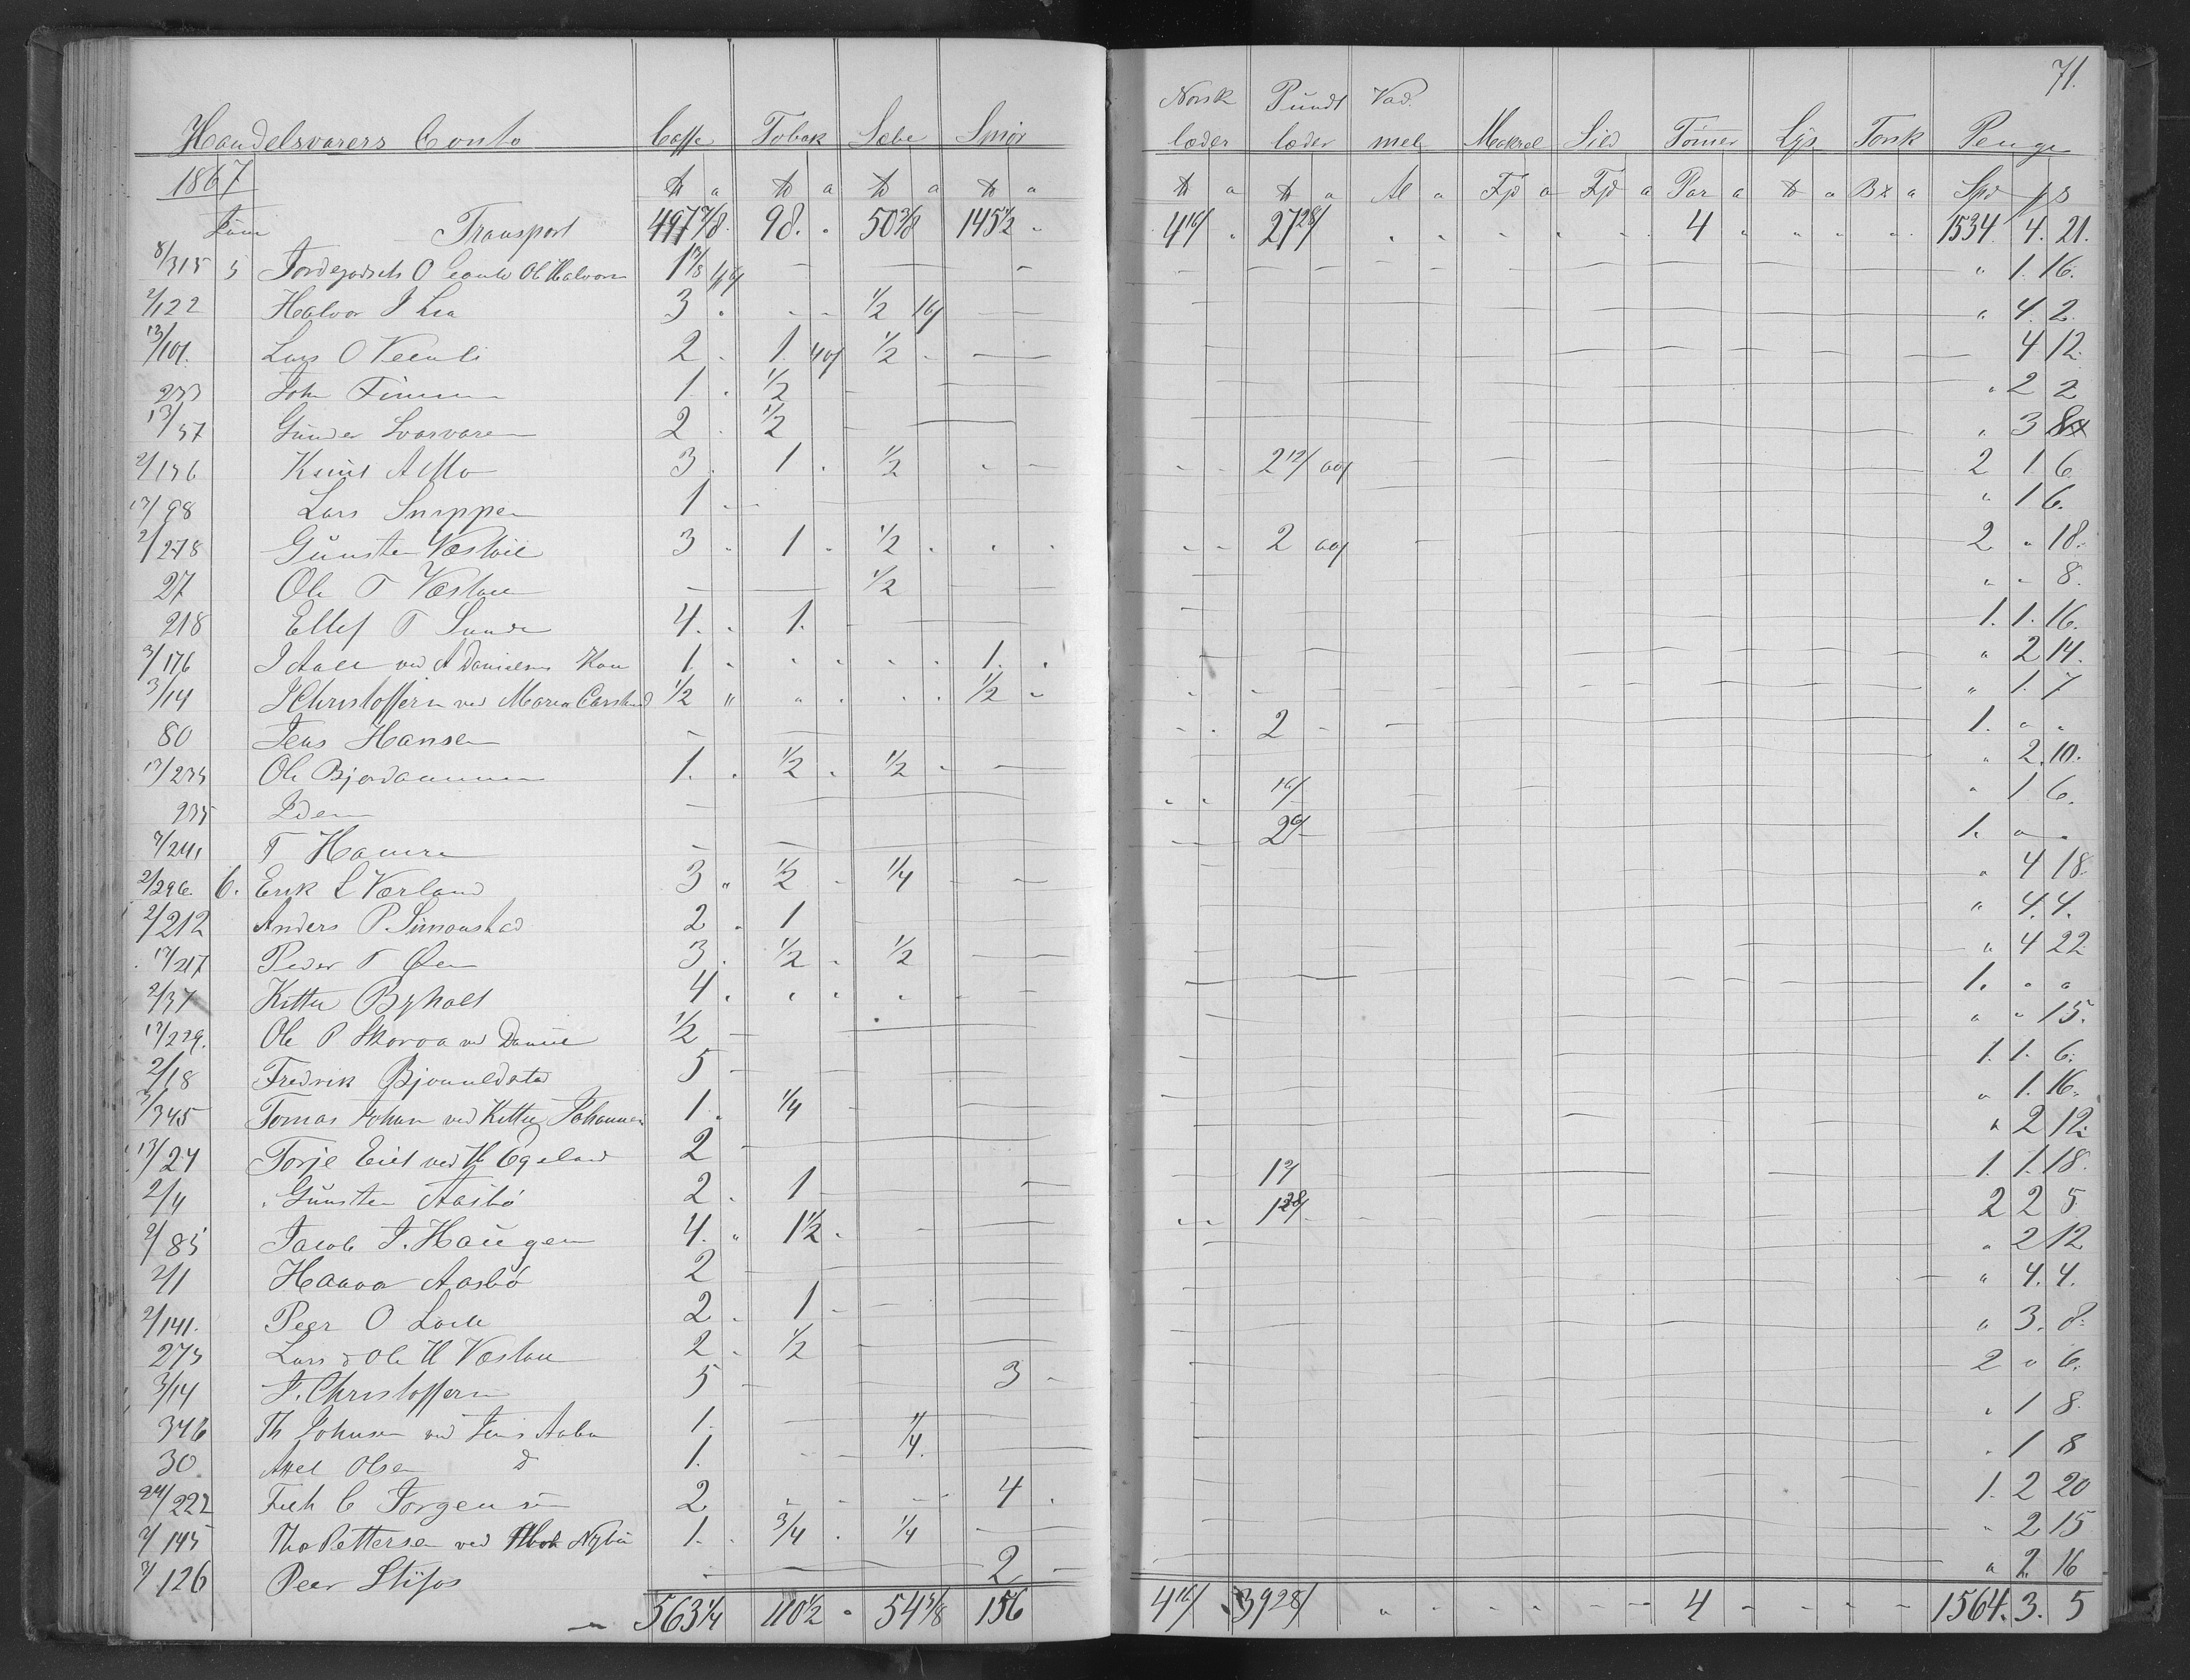 71.
Handelsvarers Conto Caffe Tobak Sæbe Smør Norsk læder Pundt læder Vadmel Makrel Sild Tømer Lys Torsk Penge
1867 ℔ a ℔ a ℔ a ℔ a ℔ a ℔ a Al a Fjd a Fjd a Par a ℔ a B# a Spd ß
Juni Transport 497 7/8 98. 50 3/8 145 1/2 4 16/ 27 28/ 4 1534. 4. 21.
8/315 5 Jordegodsets O Conto Ole Halvorsen 1 1/8 " 1. 16.
2/122 Halvor J Lia 3 1/2 16/ " 4. 2.
13/101. Lars O 2 1. 40/ 1/2 4 12.
233 John 1. 1/2 " 2 2
13/57 Gunder Svasvaren 2 1/2 " 3 8
2/156 Knut A Mo 3 1. 1/2 2 12/ 2 1. 6
13/98 Lars Snippen 1 " 1 6.
2/278 Gunsten Væstøil 3 1 1/2 2 2 " 18.
27 Ole T Væstøl 1/2 " " 8.
218 Ellef T Sunde 4. 1. 1. 1. 16.
3/176 J Aall ved A Danielsens Kone 1. 1. " 2 14.
3/14 J Christoffersen ved Maren Carstens 1/2 1/2 " 1. 7
80 Jens Hansen 2 1. " "
13/235 Ole Bjordammen 1. 1/2 1/2 " 2. 10.
235 Idem 16/ " 1 6.
7/241 T Hamre 2 6/ 1. " "
2/296. 6. Erik L Værland 3 1/2 1/4 " 4 18.
2/212 Anders P. Simonstad 2 1 " 4. 4.
13/217 Peder T Øen 3 1/2 1/2 " 4 22
2/37 Kittel Byholt 4 1. " "
13/229. Ole P Skoroa ved Daniel 1/2 " " 15.
2/18 Fredrik Bjonneldstad 5 1. 1. 6.
3/345 Tomas Johnsen ved Kittel Johannesen 1. 1/4 " 1. 16.
13/24 Torje Eiet ved H Egeland 2 " 2 12
2/4 Gunsten Aasbø 2 1 1. 1. 18.
2/85 Jacob J. Haugen 4. 1 1/2 1 28/ 2 2 5
2/1 Haavor Aasbø 2 " 2 12
2/141. Peer O 2 1 " 4. 4.
275 Lars & Ole H Væstøl 2 1/2 " 3. 8.
3/14 J. Christoffersen 5 3 2 " 6.
346 Th Johnsen ved Jens 1. 1/4 " 1 8.
30 Axel Olsen d 1. 1/4. " 1 8
24/222 C Jørgensen 2 4 1. 2 20
7/145 Tho Pettersen ved 1. 3/4 1/4 " 2 15
3/126 Peer Stifos 2 " 2 16
563 1/4 110 1/2 54 5/8 156 4 16/ 39 28/ 4 1564. 3. 5